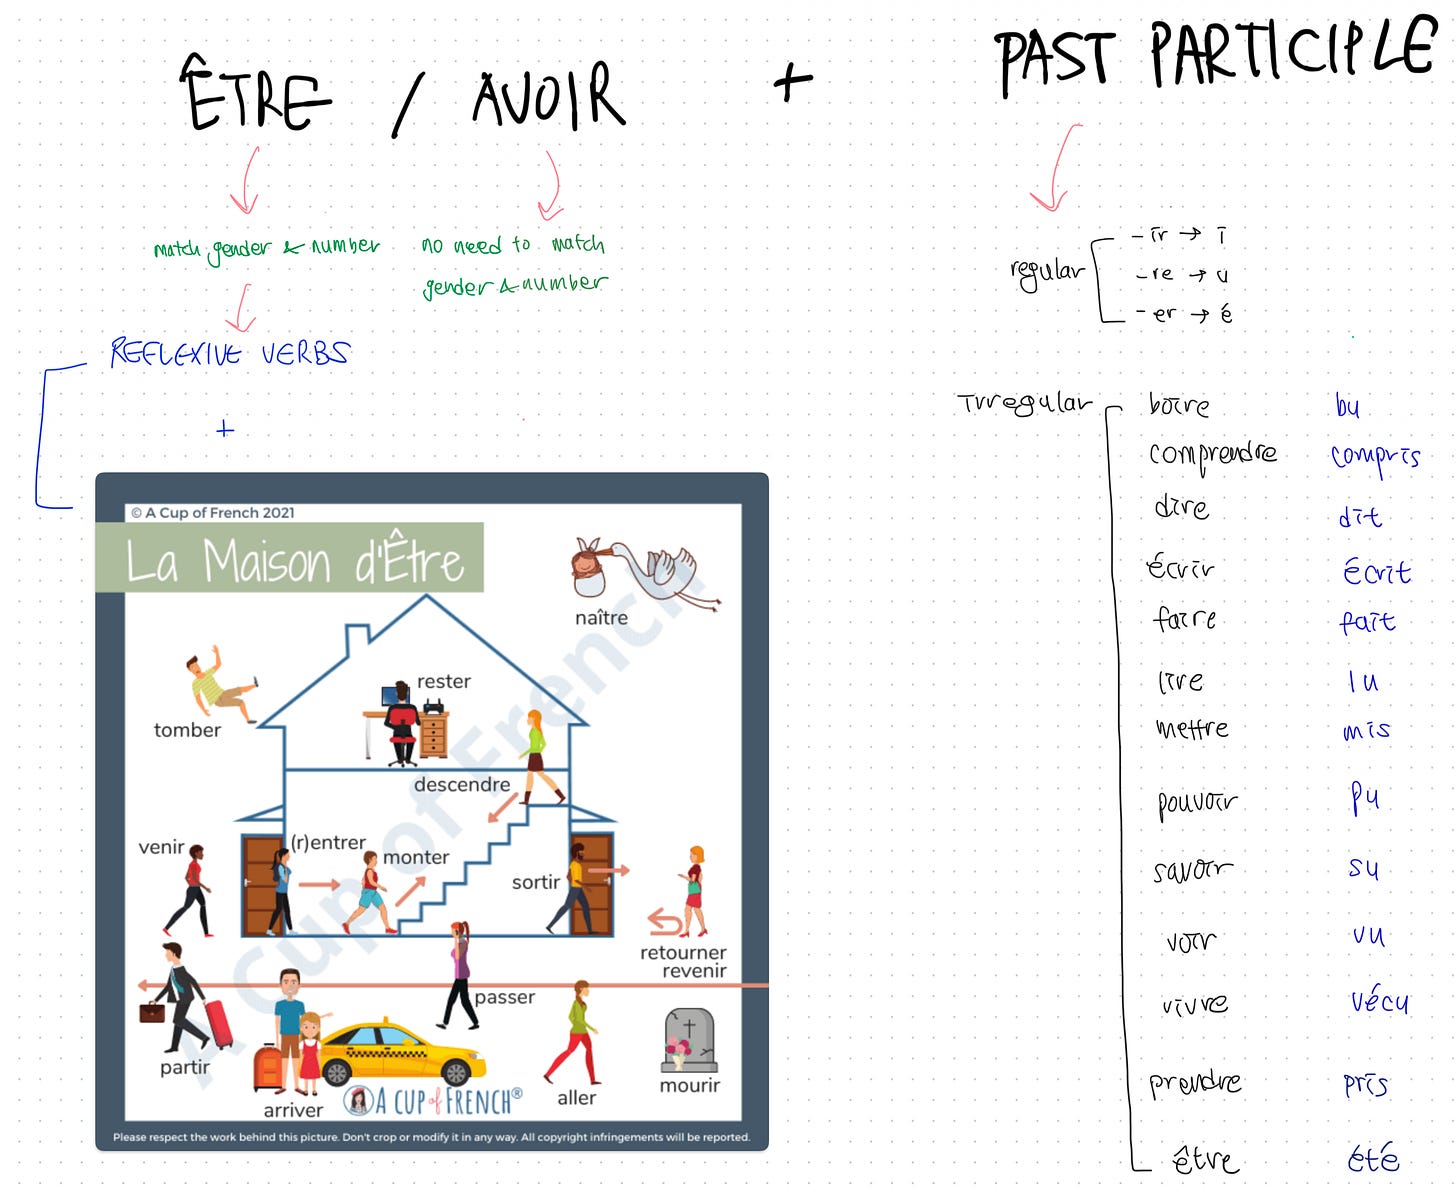 ÊTRE / AVOIR + PAST PARTICIPLE
match gender & number
no need to match
gender & number
REFLEXIVE VERBS
+
© A Cup of French 2021
La Maison d'Être
naître
tomber
rester
descendre
venir
(r)entrer
monter
sortir
retourner
revenir
passer
partir
arriver
aller
mourir
A CUP of FRENCH®
Please respect the work behind this picture. Don't crop or modify it in any way. All copyright infringements will be reported.
A Cup of French
regular
-ir → i
-re → u
-er → é
Irregular
boire bu
comprendre compris
dire dit
écrir écrit
faire fait
lire lu
mettre mis
pouvoir pu
savoir su
voir vu
vivre vécu
prendre pris
être été